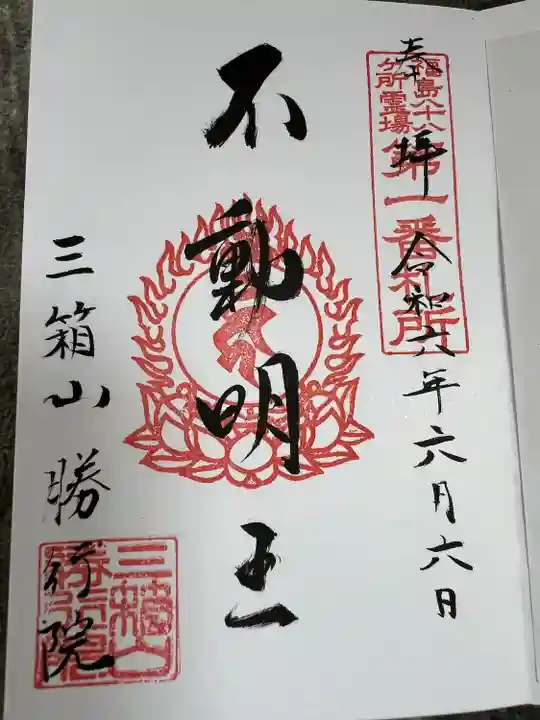 奉拝 令和六年六月六日
福島八十八
ヶ所霊場
第一番札所
不動明王
三箱山勝行院
三箱山
勝行院